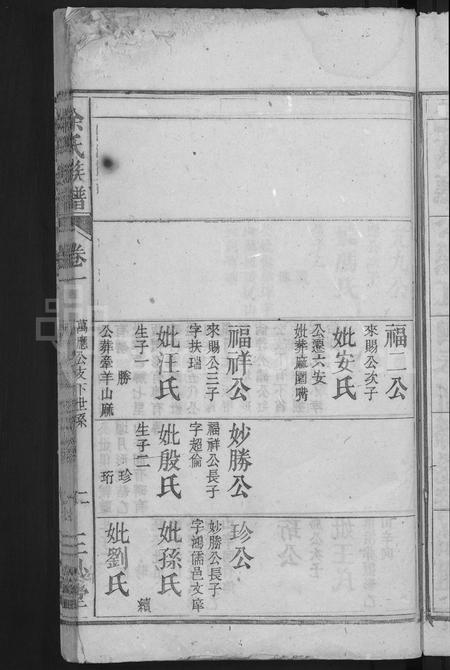 福二公
來賜公次子
妣安氏
公遷六安
妣葬麻園嘴
福祥公
來賜公三子
字扶瑞
妣汪氏
生子一
勝
公葬牽羊山麻
妙勝公
福祥公長子
字超倫
妣殷氏
生子二
珍
珩
珍公
妙勝公長子
字鴻儒邑文庠
妣孫氏
續
妣劉氏
氏族譜
卷一
萬應公支下世系